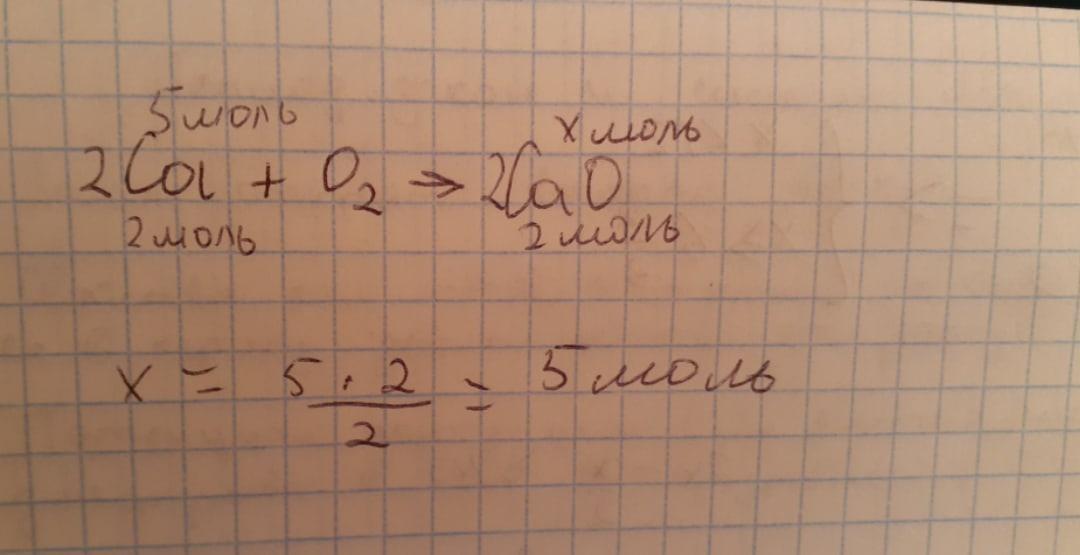 5 моль х моль
2Ca + O₂ → 2CaO
2 моль 2 моль
x = 5 · 2 / 2 = 5 моль